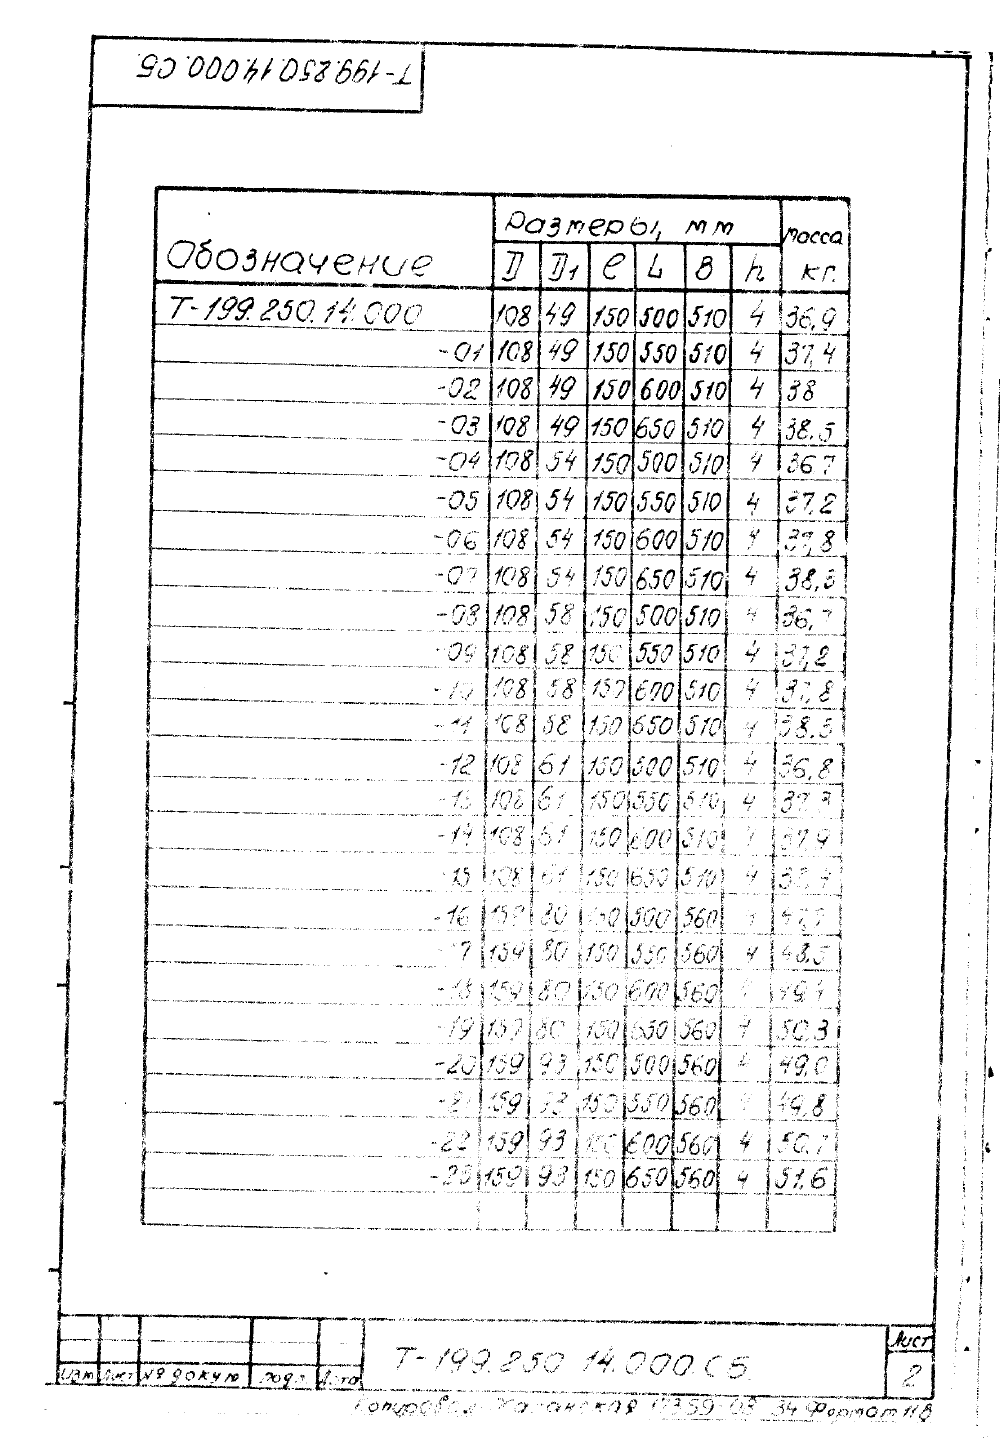 Т-199.250.14.000.СБ
Обозначение Размеры, мм масса кг.
D D1 ℓ L B h
Т-199.250.14.000 108 49 150 500 510 4 36,9
-01 108 49 150 550 510 4 37,4
-02 108 49 150 600 510 4 38
-03 108 49 150 650 510 4 38,5
-04 108 54 150 500 510 4 36 7
-05 108 54 150 550 510 4 37,2
-06 108 54 150 600 510 4 37,8
-07 108 54 150 650 510 4 38,3
-08 108 58 150 500 510 4 36,7
-09 108 58 150 550 510 4 37,2
-10 108 58 150 600 510 4 37,8
-11 108 58 150 650 510 4 38,3
-12 108 61 150 500 510 4 36,8
-13 108 61 150 550 510 4 37,3
-14 108 61 150 600 510 4 37,9
-15 108 61 150 650 510 4 38,4
-16 159 80 150 500 560 4
-17 159 80 150 550 560 4 48,5
-18 159 80 150 600 560 4 49,4
-19 159 80 150 650 560 4 50,3
-20 159 93 150 500 560 4 49,0
-21 159 93 150 550 560 4 49,8
-22 159 93 150 600 560 4 50,7
-23 159 93 150 650 560 4 51,6
Изм Лист № докум подп Дата
Т-199.250 14.000.СБ
Лист
2
Копировал Хаганская 17359-03 34 Формат 11В